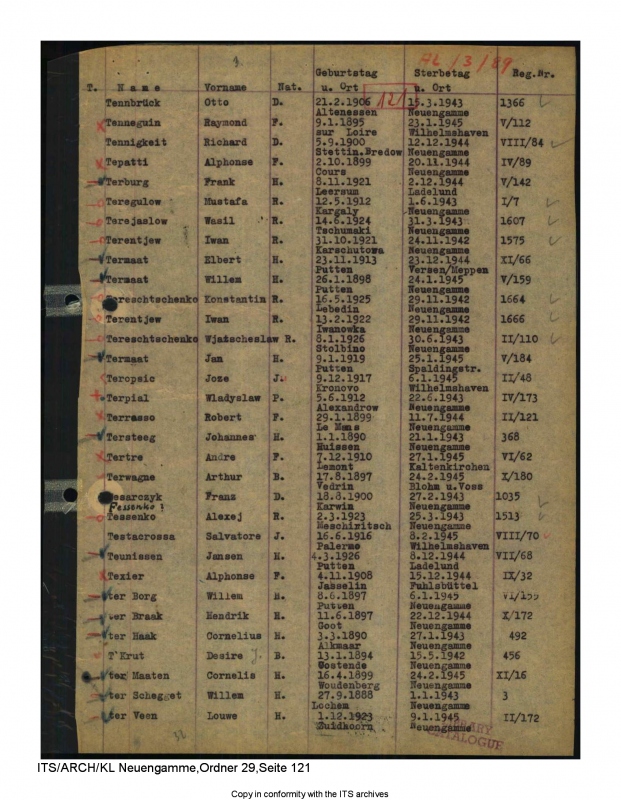 3
AL/3/89
Geburtstag Sterbetag Reg.Nr.
T. Name Vorname Nat. u. Ort u. Ort
121
Tennbrück Otto D. 21.2.1906 15.3.1943 1366
Altenessen Neuengamme
Tenneguin Raymond F. 9.1.1895 23.1.1945 V/112
sur Loire Wilhelmshaven
Tennigkeit Richard D. 5.9.1900 12.12.1944 VIII/84
Stettin.Bredow Neuengamme
Tepatti Alphonse F. 2.10.1899 20.11.1944 IV/89
Cours Neuengamme
Terburg Frank H. 8.11.1921 2.12.1944 V/142
Leersum Ladelund
Teregulow Mustafa R. 12.5.1912 1.6.1943 I/7
Kargaly Neuengamme
Terejaslow Wasil R. 14.6.1924 31.3.1943 1607
Tschumaki Neuengamme
Terentjew Iwan R. 31.10.1921 24.11.1942 1575
Karschutowa Neuengamme
Termaat Elbert H. 23.11.1913 23.12.1944 XI/66
Putten Versen/Meppen
Termaat Willem H. 26.1.1898 24.1.1945 V/159
Putten Neuengamme
Tereschtschenko Konstantin R. 16.5.1925 29.11.1942 1664
Lebedin Neuengamme
Terentjew Iwan R. 13.2.1922 29.11.1942 1666
Iwanowka Neuengamme
Tereschtschenko Wjatscheslaw R. 8.1.1926 30.6.1943 II/110
Stolbino Neuengamme
Termaat Jan H. 9.1.1919 25.1.1945 V/184
Putten Spaldingstr.
Teropsic Joze J. 9.12.1917 6.1.1945 II/48
Kronovo Wilhelmshaven
Terpial Wladyslaw P. 5.6.1912 22.6.1943 IV/173
Alexandrow Neuengamme
Terrasso Robert F. 29.1.1899 11.7.1944 II/121
Le Mans Neuengamme
Tersteeg Johannes H. 1.1.1890 21.1.1943 368
Huissen Neuengamme
Tertre Andre F. 7.12.1910 27.1.1945 VI/62
Lemont Kaltenkirchen
Terwagne Arthur B. 17.8.1897 24.2.1945 X/180
Vedrin Blohm u.Voss
Tesarczyk Franz D. 18.8.1900 27.2.1943 1035
Fessenko? Karwin Neuengamme
Tessenko Alexej R. 2.3.1923 25.3.1943 1513
Meschiritsch Neuengamme
Testacrossa Salvatore J. 16.6.1916 8.2.1945 VIII/70
Palermo Wilhelmshaven
Teunissen Jansen H. 4.3.1926 8.12.1944 VII/68
Putten Ladelund
Texier Alphonse F. 4.11.1908 15.12.1944 IX/32
Jasselin Fuhlsbüttel
ter Borg Willem H. 8.6.1897 6.1.1945 VI/159
Putten Neuengamme
ter Braak Hendrik H. 11.6.1897 22.12.1944 X/172
Goot Neuengamme
ter Haak Cornelius H. 3.3.1890 27.1.1943 492
Alkmaar Neuengamme
T'Krut Desire J. B. 13.1.1894 15.5.1942 456
Oostende Neuengamme
ter Maaten Cornelis H. 16.4.1899 24.2.1945 XI/16
Woudenberg Neuengamme
ter Schegget Willem H. 27.9.1888 1.1.1943 3
Lochem Neuengamme
ter Veen Louwe H. 1.12.1923 9.1.1945 II/172
Zuidkoorn Neuengamme
CATALOGUE
ITS/ARCH/KL Neuengamme,Ordner 29,Seite 121
Copy in conformity with the ITS archives